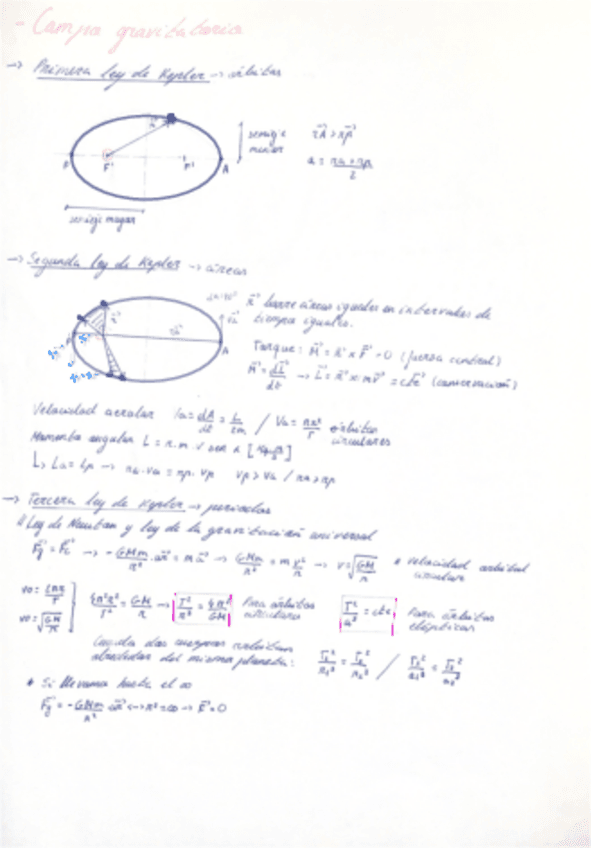 - Campo gravitatorio
→ Primera ley de Kepler → órbitas
semieje menor
rA > rp
a = ra + rp / 2
P F F' A
semieje mayor
→ Segunda ley de Kepler → áreas
r barre áreas iguales en intervalos de
tiempo iguales.
A
Torque: M = r x F = 0 (fuerza central)
M = dL/dt → L = r x mv = cte (conservación)
Velocidad areolar Va = dA/dt = L/2m / Va = πr²/T órbitas
circulares
Momento angular L = r.m.v sen α
L> La = Lp → ra.va = rp.vp vp > va / ra > rp
→ Tercera ley de Kepler → periodos
Ley de Newton y ley de la gravitación universal
Fg = Fc → - GMm/r² . ur = m a → GMm/r² = m v²/r → v = √GM/r * velocidad orbital
circular
vo = 2πr/T
vo = √GM/r
4π²r²/T² = GM/r → T²/r³ = 4π²/GM Para órbitas
circulares
T²/a³ = cte Para órbitas
elípticas
Cuando dos cuerpos orbitan
alrededor del mismo planeta:
* Si llevamos hasta el ∞
Fg = - GMm/r² ur → r² = ∞ → F = 0